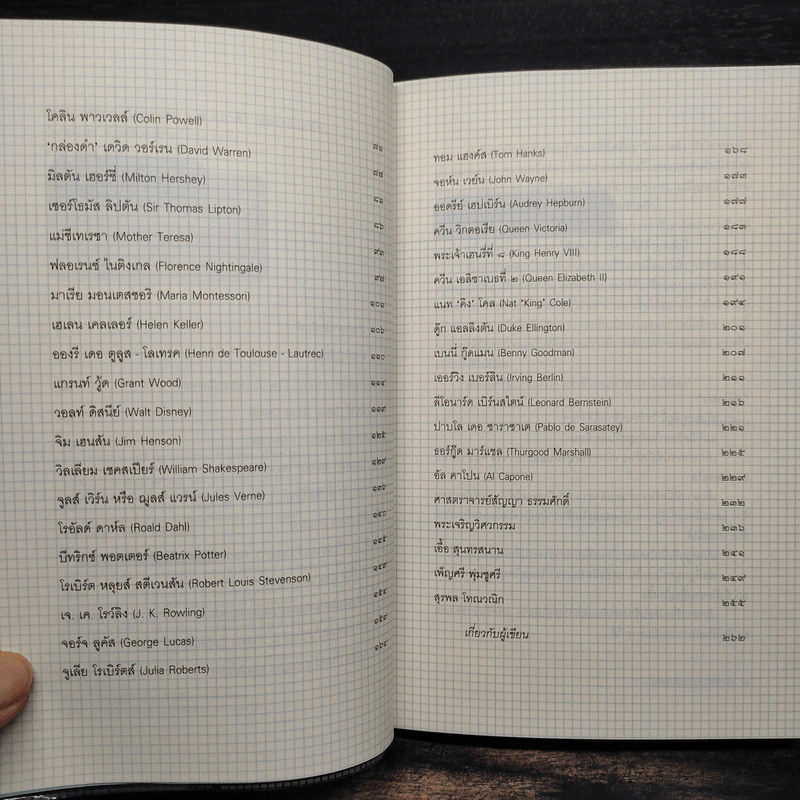 โคลิน พาวเวลล์ (Colin Powell) ๗๑
'กล่องดำ' เดวิด วอร์เรน (David Warren) ๗๗
มิลตัน เฮอร์ชี่ (Milton Hershey) ๘๑
เซอร์โธมัส ลิปตัน (Sir Thomas Lipton) ๘๖
แม่ชีเทเรซา (Mother Teresa) ๙๓
ฟลอเรนซ์ ไนติงเกล (Florence Nightingale) ๙๘
มาเรีย มอนเตสซอริ (Maria Montessori) ๑๐๑
เฮเลน เคลเลอร์ (Helen Keller) ๑๐๖
อองรี เดอ ตูลูส - โลเทรค (Henri de Toulouse - Lautrec) ๑๑๐
แกรนท์ วู้ด (Grant Wood) ๑๑๔
วอลท์ ดิสนีย์ (Walt Disney) ๑๑๙
จิม เฮนสัน (Jim Henson) ๑๒๕
วิลเลียม เชคสเปียร์ (William Shakespeare) ๑๒๙
จูลส์ เวิร์น หรือ ฌูลส์ แวรน์ (Jules Verne) ๑๓๖
โรอัลด์ ดาห์ล (Roald Dahl) ๑๔๐
บีทริกซ์ พอตเตอร์ (Beatrix Potter) ๑๔๕
โรเบิร์ต หลุยส์ สตีเวนสัน (Robert Louis Stevenson) ๑๔๙
เจ. เค. โรว์ลิง (J. K. Rowling) ๑๕๔
จอร์จ ลูคัส (George Lucas) ๑๕๙
จูเลีย โรเบิร์ตส์ (Julia Roberts) ๑๖๔
ทอม แฮงคัส (Tom Hanks) ๑๖๘
จอห์น เวย์น (John Wayne) ๑๗๓
ออดรีย์ เฮปเบิร์น (Audrey Hepburn) ๑๗๗
ควีน วิกตอเรีย (Queen Victoria) ๑๘๓
พระเจ้าเฮนรี่ที่ ๘ (King Henry VIII) ๑๘๘
ควีน เอลิซาเบธที่ ๒ (Queen Elizabeth II) ๑๙๑
แนท 'คิง' โคล (Nat 'King' Cole) ๑๙๔
ดู๊ก แอลลิงตัน (Duke Ellington) ๒๐๑
เบนนี่ กู๊ดแมน (Benny Goodman) ๒๐๗
เออร์วิง เบอร์ลิน (Irving Berlin) ๒๑๑
ลีโอนาร์ด เบิร์นสไตน์ (Leonard Bernstein) ๒๑๖
ปาบโล เดอ ซาราซาเต (Pablo de Sarasatey) ๒๒๑
ธอร์กู๊ด มาร์แชล (Thurgood Marshall) ๒๒๕
อัล คาโปน (Al Capone) ๒๒๙
ศาสตราจารย์สัญญา ธรรมศักดิ์ ๒๓๒
พระเจริญวิศวกรรม ๒๓๖
เอื้อ สุนทรสนาน ๒๔๑
เพ็ญศรี พุ่มชูศรี ๒๔๙
สุรพล โทณวณิก ๒๕๕
เกี่ยวกับผู้เขียน ๒๖๒